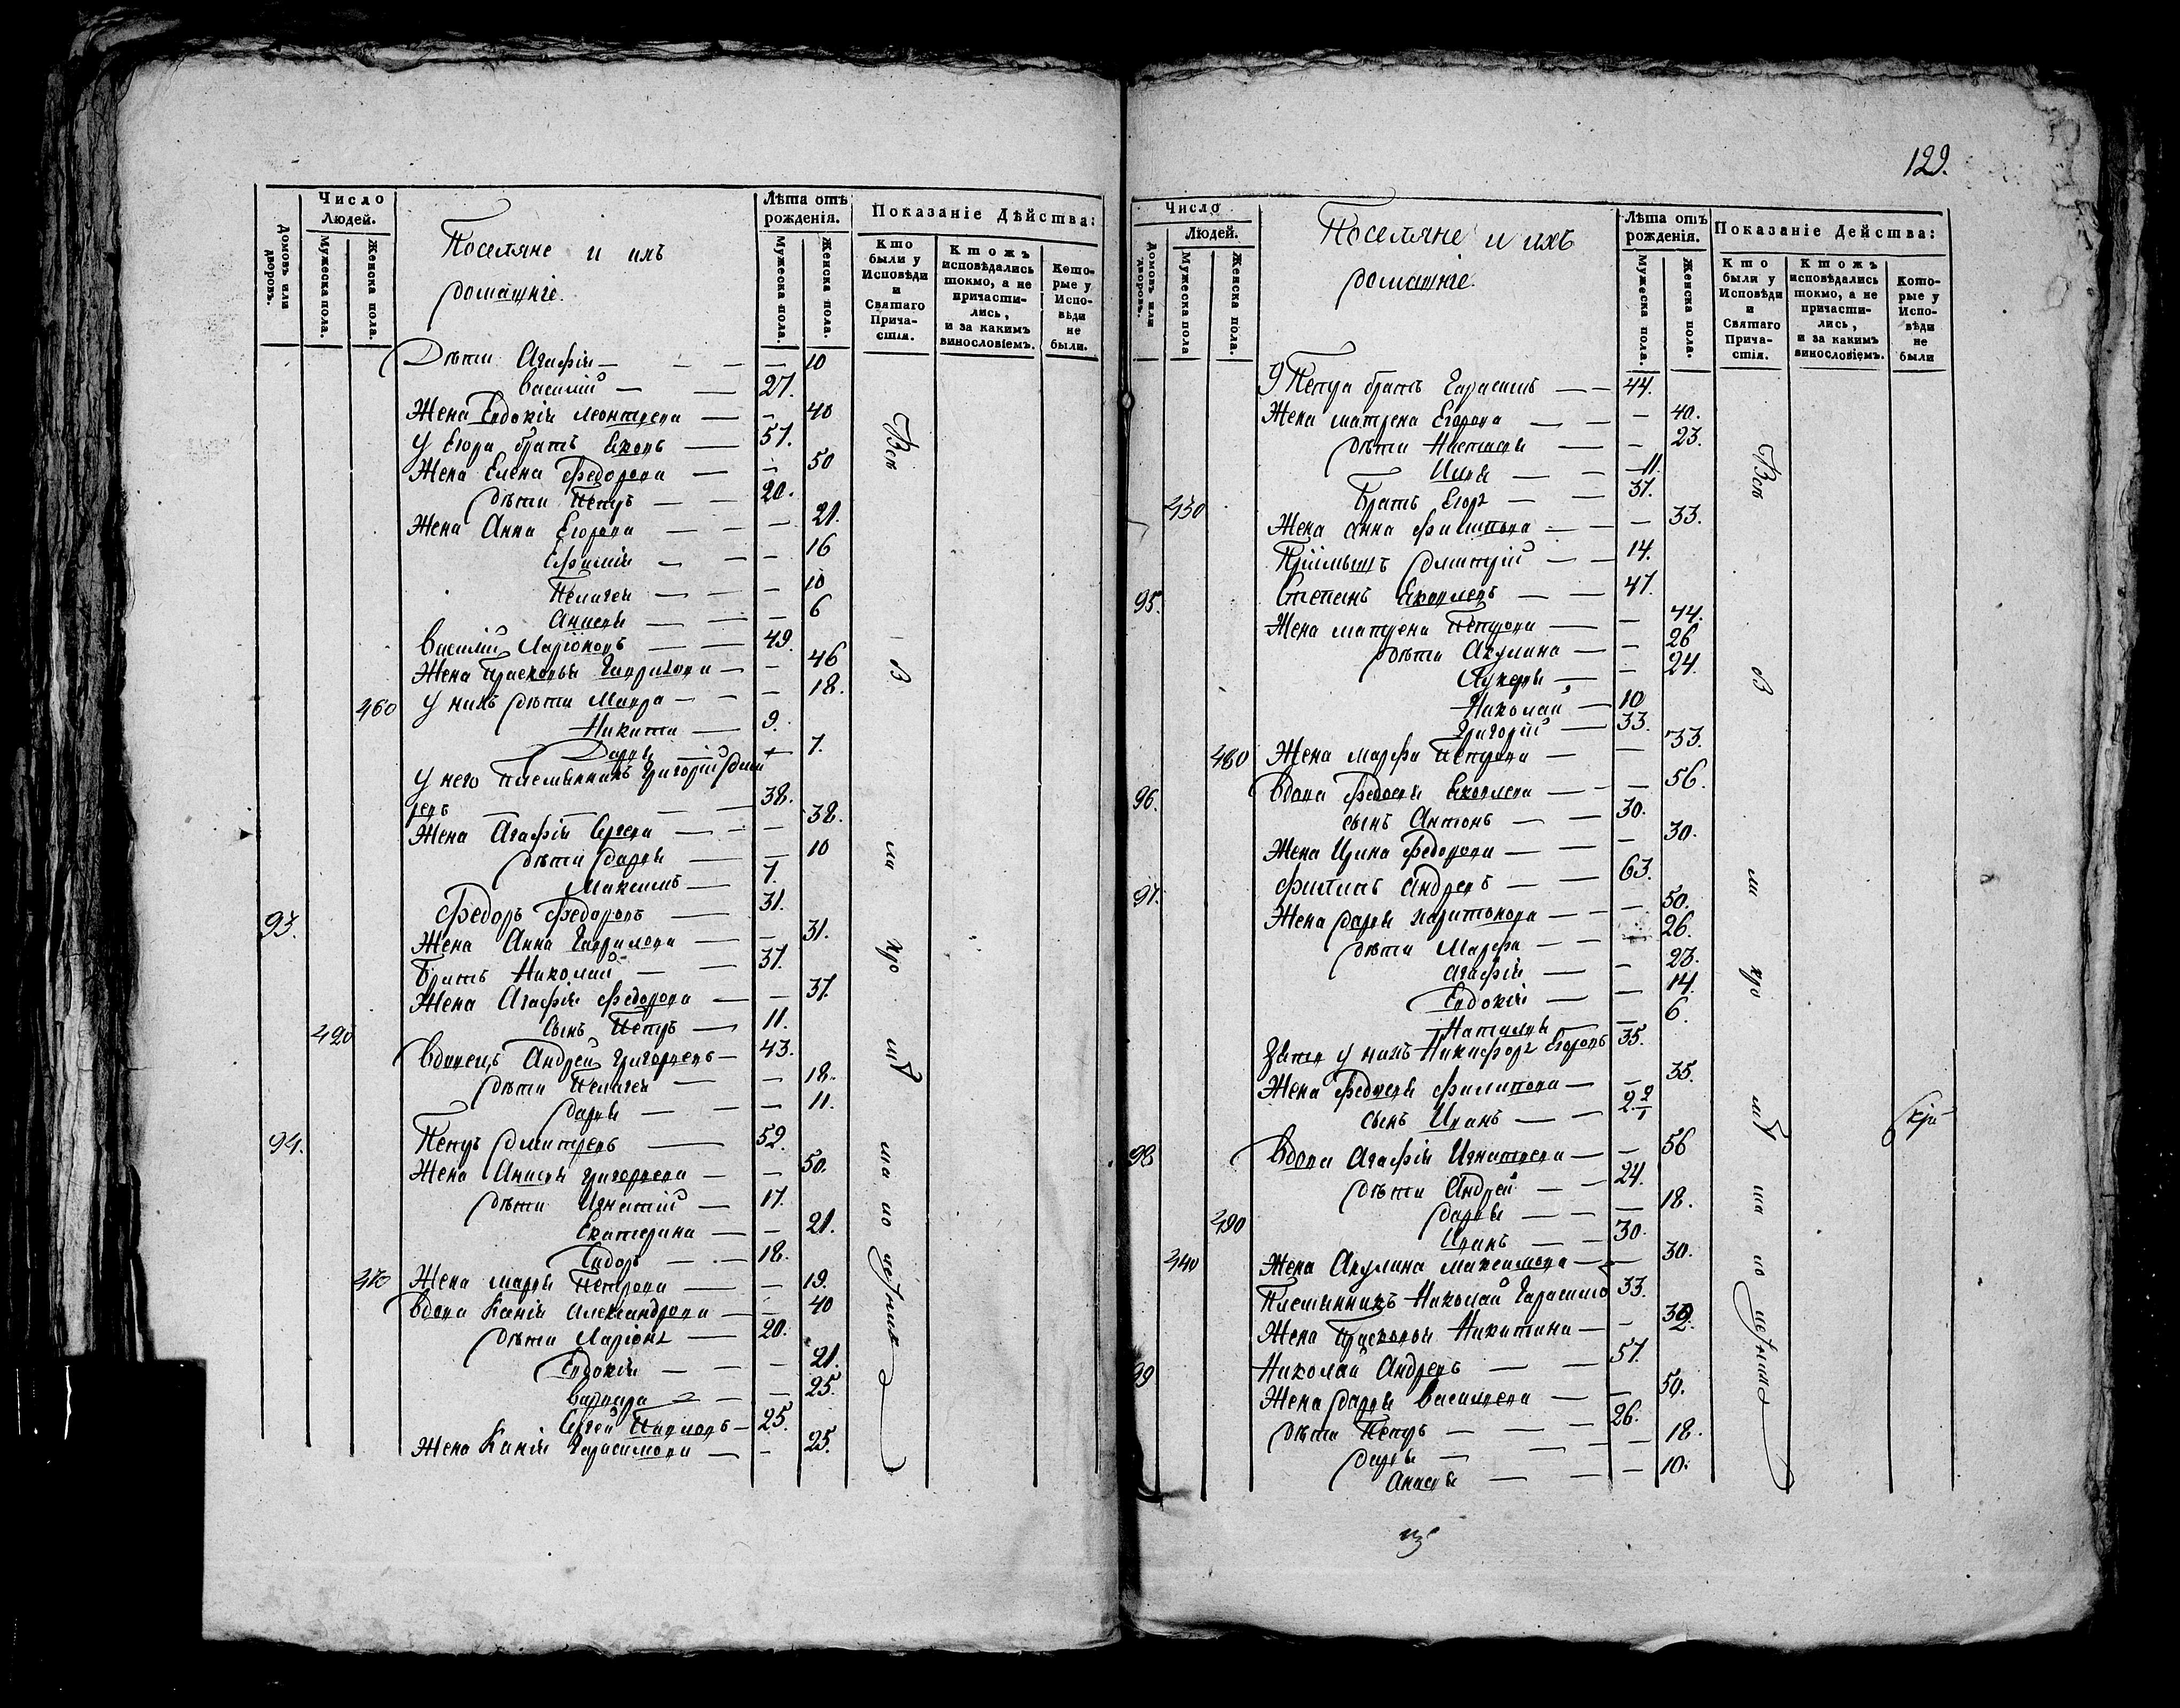 Число
Людей.
Домовъ или дворовъ.
Мужеска пола.
Женска пола.
Поселяне и ихъ
домашніе.
Лѣта отъ рожденія.
Мужеска пола.
Женска пола.
Показаніе Дѣйства:
Кто были у Исповѣди и Святаго Причастія.
Ктожъ исповѣдались токмо, а не причастились, и за какимъ винословіемъ.
Которые у Исповѣди не были.
Дѣти Агафія — — 10
Василій — 27.
Жена Евдокія Леонтьева — 40
У Егора братъ Яковъ — 57.
Жена Елена Федорова — 50
дѣти Петръ — 20.
Жена Анна Егорова — 21.
Ефимія — 16
Пелагея — 10
Анисья — 6
Василій Ларіоновъ — 49.
Жена Прасковья Гаврилова — 46
460 У нихъ дѣти Мавра — 18.
Никита — 9.
Дарья — 7.
У него племянникъ Григорій
38.
Жена Агафія Сергева — 38.
дѣти Дарья — 10
Максимъ — 7.
93. Федоръ Федоровъ — 31.
Жена Анна Гаврилева — 31.
Братъ Николай — 37.
Жена Агафія Федорова — 37.
420 сынъ Петръ — 11.
Вдовецъ Андрей Григорьевъ — 43.
дѣти Пелагея — 18.
Дарья — 11.
94. Петръ Дмитревъ — 52.
Жена Анисья Григорьева — 50.
дѣти Игнатій — 17.
Екатерина — 21.
Сидоръ — 18.
470 Жена Марья Петрова — 19.
Вдова Ксенія Александрова — 40
дѣти Ларіонъ — 20.
Евдокія — 21.
Варвара — 25.
Сергей — 25.
Жена Ксенія Гарасимова — 25.
Всѣ
129.
Число
Людей.
Домовъ или дворовъ.
Мужеска пола
Женска пола.
Поселяне и ихъ
домашніе.
Лѣта отъ рожденія.
Мужеска пола.
Женска пола.
Показаніе Действа:
Кто были у Исповѣди и Святаго Причастія.
Ктожъ исповѣдались токмо, а не причастились, и за какимъ винословіемъ.
Которые у Исповѣди не были
У Петра братъ Гарасимъ — 44.
Жена Матрена Егорова — 40.
дѣти Настасья — 23.
Илья — 11.
430 Братъ Егоръ — 37.
Жена Анна Филипова — 33.
Пріимышъ Дмитрій — 14.
95. Степанъ Яковлевъ — 47.
Жена Матрена Петрова — 44.
дѣти Акулина — 26
Лукерья — 24.
Николай — 10
Григорій — 33.
480 Жена Марфа Петрова — 33.
96. Вдова Федосья Яковлева — 56.
сынъ Антонъ — 30.
Жена Ирина Федорова — 30.
97. Филипъ Андревъ — 63.
Жена Дарья Харитонова — 50.
дѣти Марфа — 26.
Агафія — 23.
Евдокія — 14.
Наталья — 6.
Зять у нихъ Никифоръ Егоровъ 35.
Жена Федосья Филипова — 35.
сынъ Иванъ — 2
98 Вдова Агафія Игнатьева — 56
дѣти Андрей — 24.
Дарья — 18.
490 Иванъ — 30.
440 Жена Акулина Максимова — 30.
Племянникъ Николай Гарасимо 33.
Жена Прасковья Никитина —
99 Николай Андревъ — 57.
Жена Дарья Васильева — 50.
дѣти Петръ — 26.
Дарья — 18.
Анисья — 10.
Всѣ